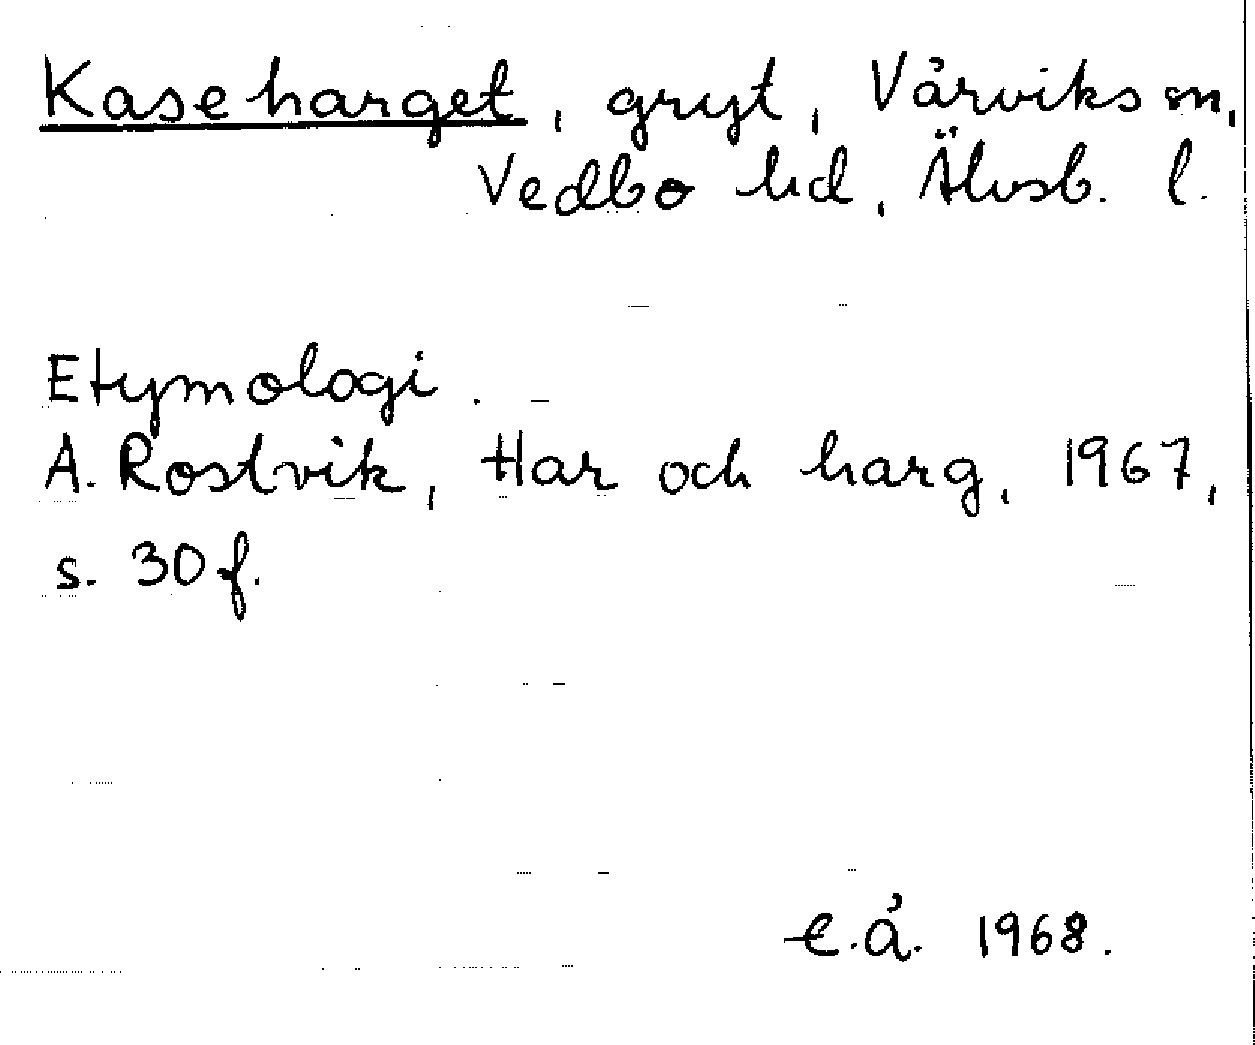 Kaseharget, gryt, Vårviks sn,
Vedbo hd, Älvsb. l.
Etymologi.
A. Rostvik, Har och harg, 1967,
s. 30 f.
E.Å. 1968.